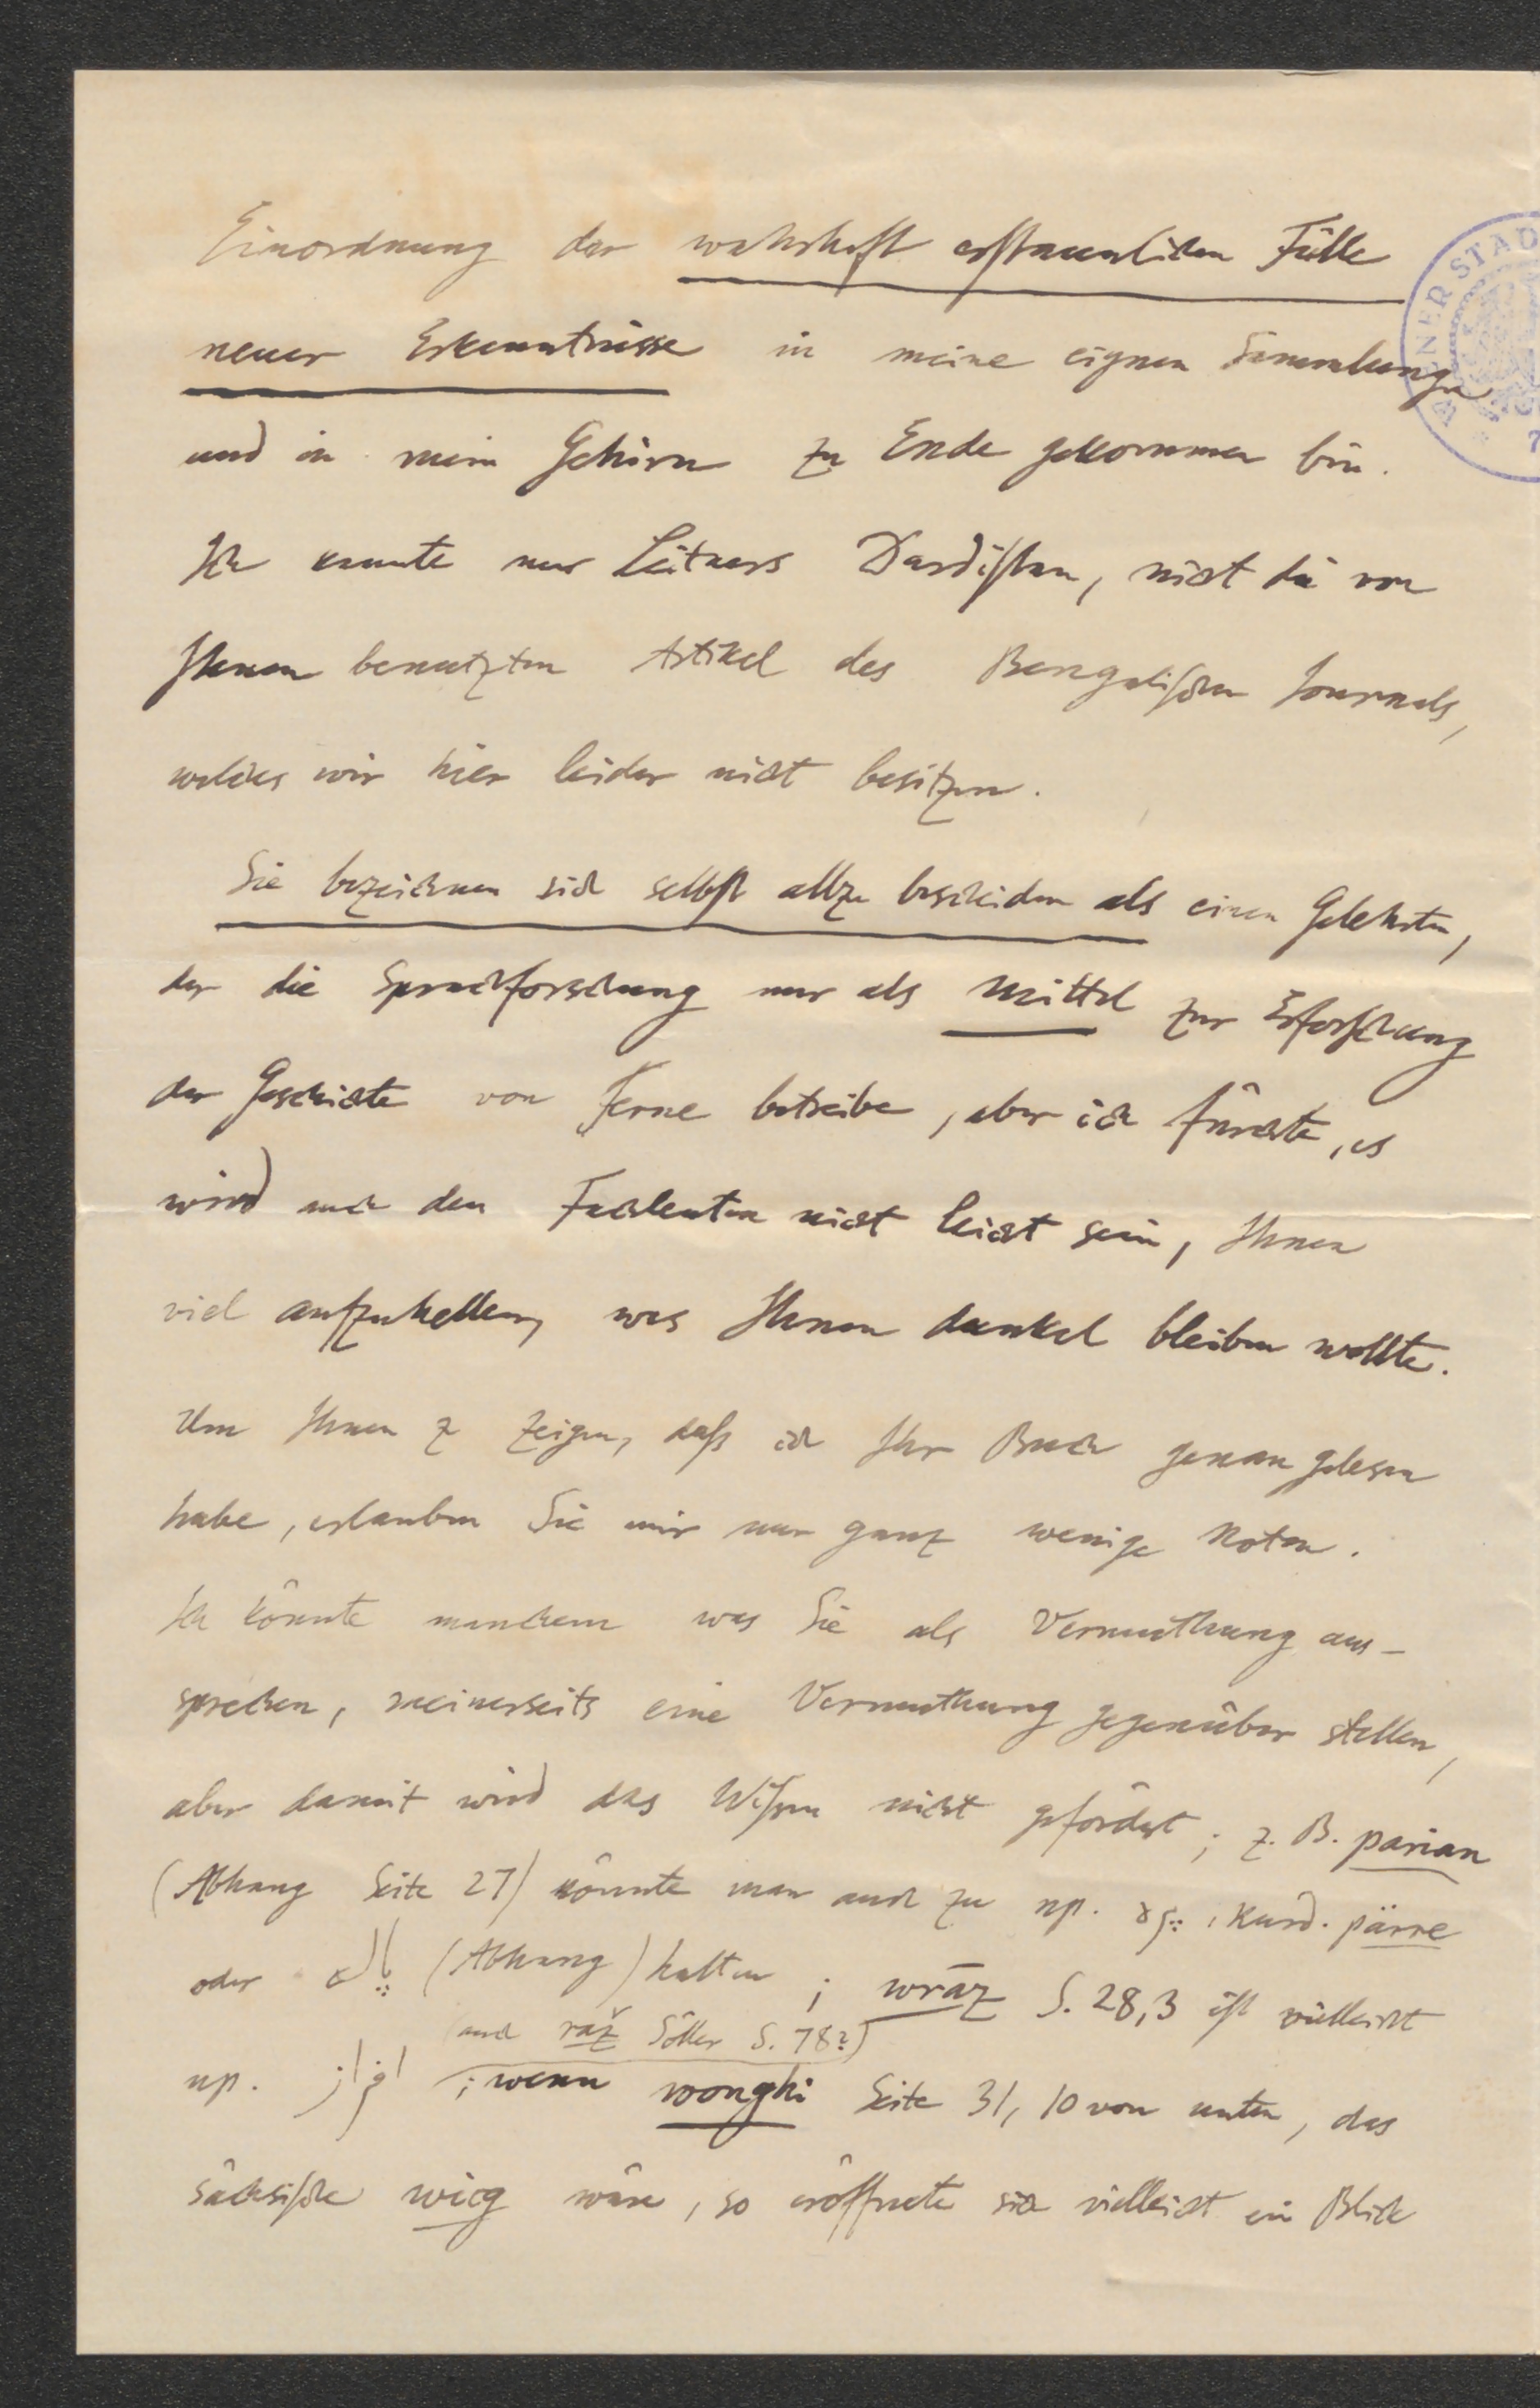 Einordnung der wahrhaft erstaunlichen Fülle
neuer Erkenntnisse in meine eignen Sammlungen
und in mein Gehirn zu Ende gekommen bin.
Ich kannte nur Leitners Dardistan, nicht die von
Ihnen benutzten Artikel des Bengalischen Journals,
welches wir hier leider nicht besitzen.
Sie bezeichnen sich selbst allzu bescheiden als einen Gelehrten,
der die Sprachforschung nur als Mittel zur Erforschung
der Geschichte von Ferne betreibe, aber ich fürchte, es
wird auch den Fachleuten nicht leicht sein, Ihnen
viel aufzuhellen, was Ihnen dunkel bleiben wollte.
Um Ihnen z zeigen, daß ich Ihr Buch genau gelesen
habe, erlauben Sie mir nur ganz wenige Noten.
Ich könnte manchem was Sie als Vermuthung aus-
sprechen, meinerseits eine Vermuthung gegenüber stellen,
aber damit wird das Wißen nicht gefördert; z. B. parian
(Abhang Seite 27) könnte man auch zu np. , kurd. pärre
oder (Abhang) halten; wrāz S. 28,3 ist vielleicht
(auch rāž S. 78?)
np. افراز ; wenn wonghi Seite 31, 10 von unten, das
sächsische wicg wäre, so eröffnete sich vielleicht ein Blick
WIENER STAD
7